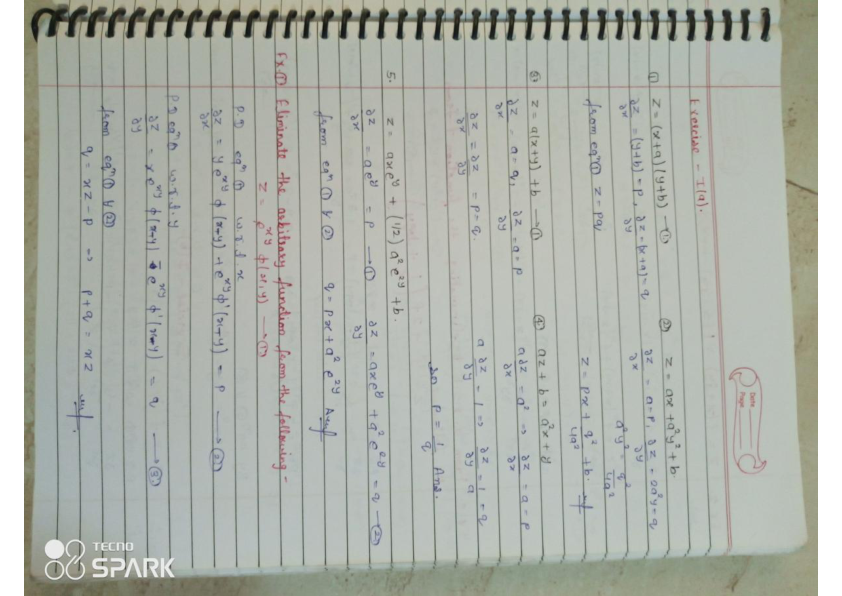 Date
Page
Exercise - I(a).
① z = (x+a)(y+b) — ①
∂z/∂x = (y+b) = p, ∂z/∂y = (x+a) = q
from eqⁿ ① z = pq
② z = ax + a²y² + b.
∂z/∂x = a = p, ∂z/∂y = 2a²y = q
a²y² = q²/4a²
z = px + q²/4a² + b.
③ z = a(x+y) + b — ①
∂z/∂x = a = q, ∂z/∂y = a = p
∂z/∂x = ∂z/∂y = p = q.
④ az + b = a²x + y
a ∂z/∂x = a² ⇒ ∂z/∂x = a = p
a ∂z/∂y = 1 ⇒ ∂z/∂y = 1/a = q
so p = 1/q Ans.
5. z = axeʸ + (1/2) a²e²ʸ + b.
∂z/∂x = aeʸ = p → ① ∂z/∂y = axeʸ + a²e²ʸ = q — ②
from eqⁿ ① & ② q = px + a²e²ʸ Ans
Ex ① Eliminate the arbitrary function from the following -
z = eˣʸ ϕ(x-y) → ①
P D eqⁿ ① w.r.t. x
∂z/∂x = y eˣʸ ϕ(x-y) + eˣʸ ϕ'(x-y) = p → ②
P D eqⁿ ① w.r.t. y
∂z/∂y = x eˣʸ ϕ(x-y) - eˣʸ ϕ'(x-y) = q → ③
from eqⁿ ① & ②
q = xz - p ⇒ p + q = xz
TECNO
SPARK